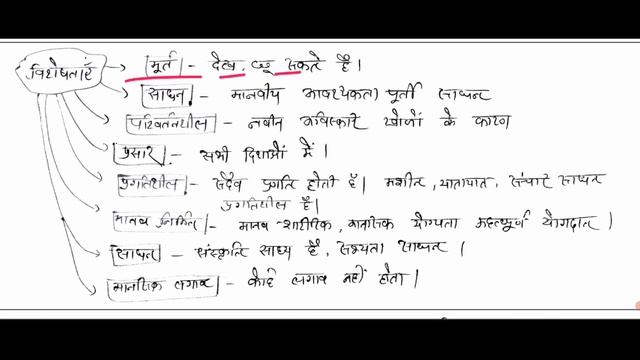 विशेषताएं
मूर्त - देख, छू सकते है।
साधन - मानवीय आवश्यकता पूर्ती साधन
परिवर्तनशील - नवीन अविस्कार खोजों के कारण
प्रसार - सभी दिशाओं में।
प्रगतिशील - सदैव प्रगति होती है। मशीन, यातायात, संचार साधन
प्रगतिशील है।
मानव निर्मित - मानव शारीरिक, मानसिक योग्यता महत्वपूर्ण योगदान।
साधन - संस्कृति साध्य है, सभ्यता साधन।
मानसिक लगाव - कोई लगाव नहीं होता।